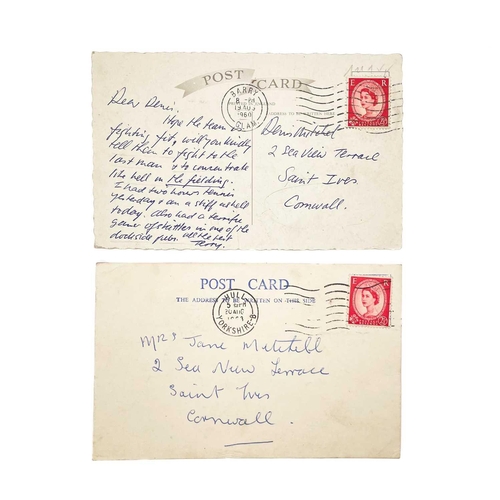 POST CARD
BARRY
GLAM
1960
E R
Dear Denis.
Hope the team is
fighting fit, will you kindly
tell them to fight to the
last man & to concentrate
like hell on the fielding.
I had two hours tennis
yesterday & am a stiff as hell
today. Also had a terrific
game of skittles in one of the
dockside pubs. All the best
Terry.
ADDRESS TO BE WRITTEN ON THIS
Denis Mitchell
2 Sea View Terrace
Saint Ives
Cornwall.
POST CARD
THE ADDRESS TO BE WRITTEN ON THIS SIDE
HULL
YORKSHIRE
E R
Mrs Jane Mitchell
2 Sea View Terrace
Saint Ives
Cornwall.